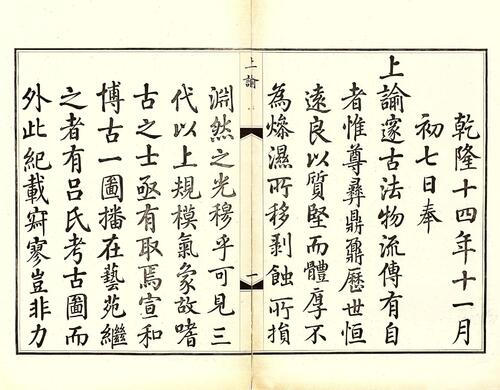 乾隆十四年十一月
初七日奉
上諭邃古法物流傳有自
者惟尊彝鼎鼐歷世恒
遠良以質堅而體厚不
為燥濕所移剥蝕所損
上諭
一
淵然之光穆乎可見三
代以上規模氣象故嗜
古之士亟有取焉宣和
博古一圖播在藝苑繼
之者有呂氏考古圖而
外此紀載寂寥豈非力